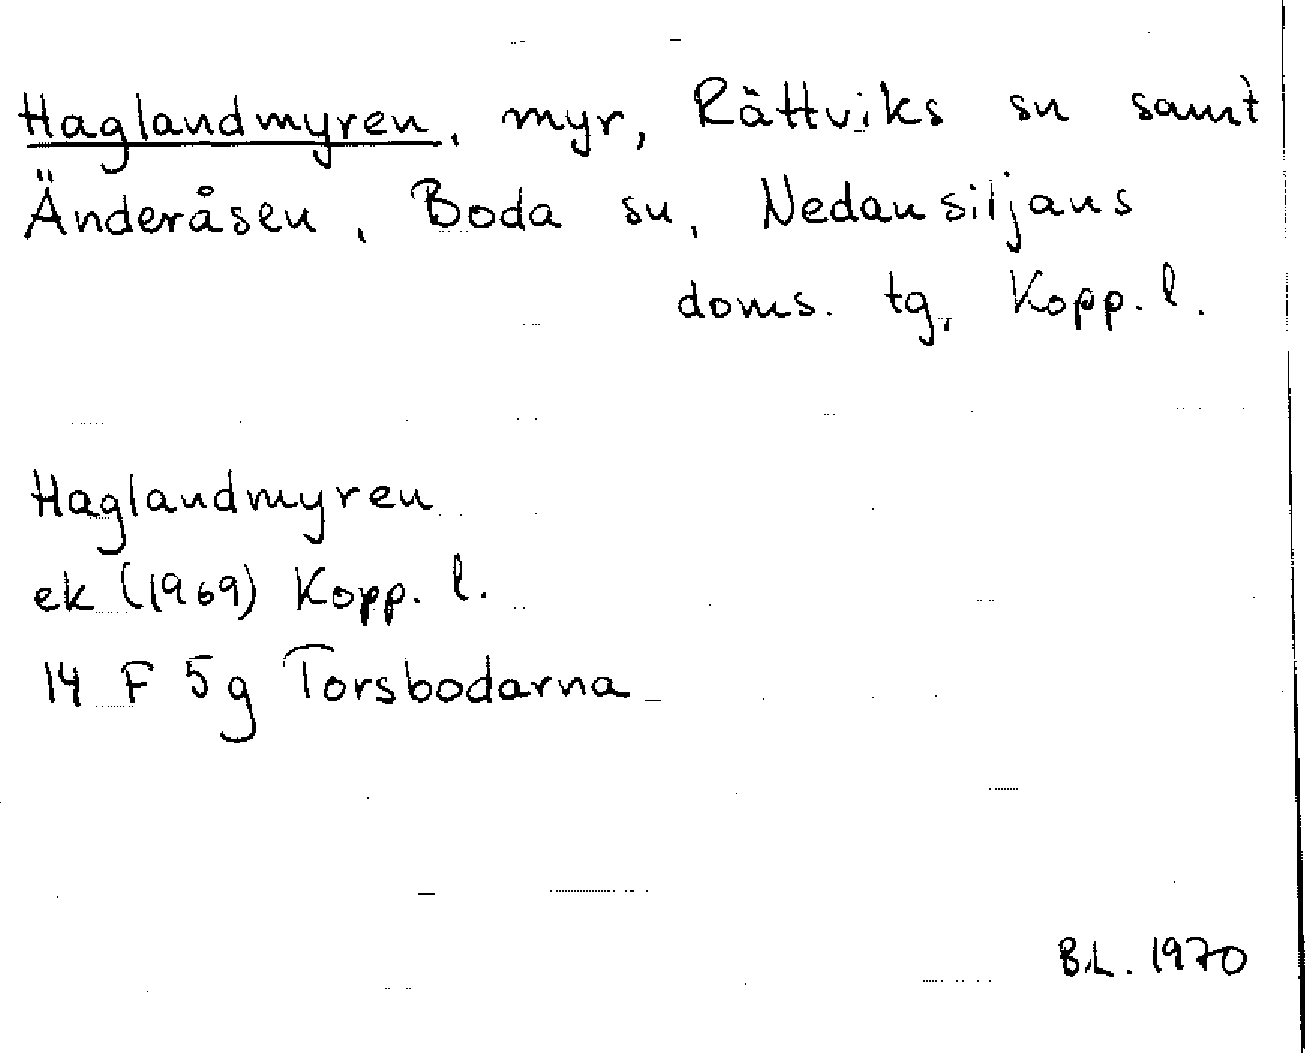 Haglandmyren, myr, Rättviks sn samt
Änderåsen, Boda sn, Nedansiljans
doms. tg, Kopp. l.
Haglandmyren
ek (1969) Kopp. l.
14 F 5g Torsbodarna
B.L. 1970